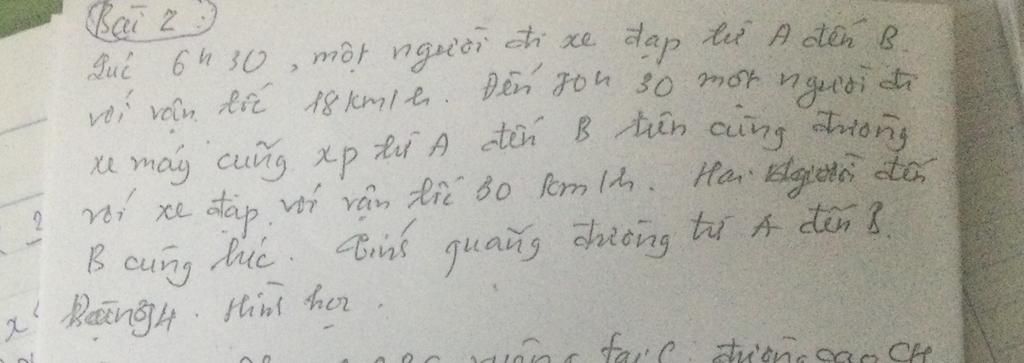 Bài 2:
Lúc 6h 30, một người đi xe đạp từ A đến B
với vận tốc 18km/h. Đến 10h 30 một người đi
xe máy cũng xp từ A đến B trên cùng đường
với xe đạp với vận tốc 30 km/h. Hai người đến
B cùng lúc. Tính quãng đường từ A đến B.
Dạng 4. Hình học.
vuông tại C, đường cao CH